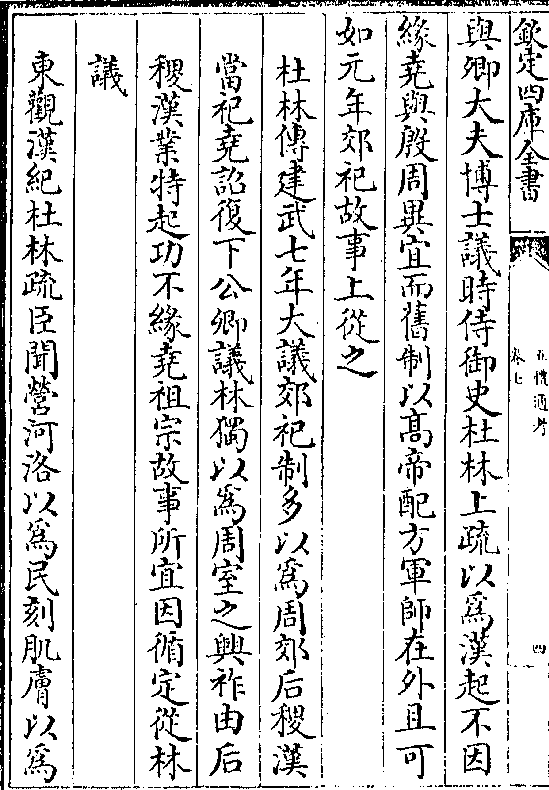 欽定四庫全書
五禮通考
卷七
四
與卿大夫博士議時侍御史杜林上疏以為漢起不因
緣堯與殷周異宜而舊制以髙帝配方軍師在外且可
如元年郊祀故事上從之
杜林傳建武七年大議郊祀制多以為周郊后稷漢
當祀堯詔復下公卿議林獨以為周室之興祚由后
稷漢業特起功不緣堯祖宗故事所宜因循定從林
議
東觀漢紀杜林疏臣聞營河洛以為民刻肌膚以為